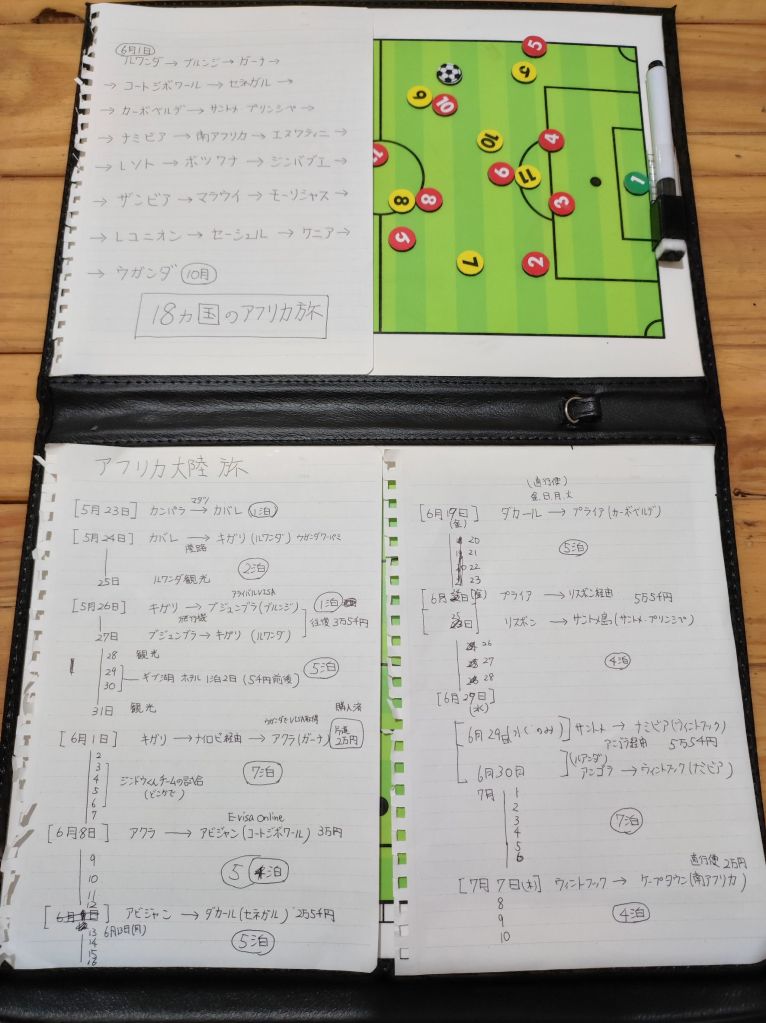 6月1日
ルワンダ→ブルンジ→ガーナ→
→コートジボワール→セネガル→
→カーボベルデ→サントメ・プリンシペ→
→ナミビア→南アフリカ→エスワティニ→
→レソト→ボツワナ→ジンバブエ→
→ザンビア→マラウイ→モーリシャス→
→レユニオン→セーシェル→ケニア→
→ウガンダ 10月
18ヵ国のアフリカ旅
5
5
9
10
10
4
11
6
11
1
8
8
3
5
7
2
アフリカ大陸 旅
マタツ
[5月23日] カンパラ→カバレ 1泊
[5月24日] カバレ→キガリ(ルワンダ)
陸路
2泊
25日 ルワンダ観光
アライバルVISA
[5月26日] キガリ→ブジュンブラ(ブルンジ) 1泊
往復 3万5千円
27日 ブジュンブラ→キガリ(ルワンダ)
28 観光
29
5泊
30 ギブ湖 ホテル 1泊2日(5千円前後)
31日 観光
購入済
ウガンダでVISA取得
[6月1日] キガリ→ナイロビ経由→アクラ(ガーナ) 片道 2万円
2
3
4 ジンドウくんチームの試合
7泊
5 (どこかで)
6
7
E-visa Online
[6月8日] アクラ→アビジャン(コートジボワール) 3万円
9
5泊
10
11
12
アビジャン→ダカール(セネガル) 2万5千円
13 6月13日(月)
14
5泊
15
16
(直行便)
金、日、月、火
[6月19日] ダカール→プライア(カーボベルデ)
20
21
5泊
22
23
プライア→リスボン経由 5万5千円
リスボン→サントメ島(サントメ・プリンシペ)
26
27
4泊
28
[6月29日]
(水)
[6月29日(水)のみ] サントメ→ナミビア(ウィントフック)
アンゴラ経由 5万5千円
(ルアンダ)
6月30日 アンゴラ→ウィントフック(ナミビア)
7月 1
2
3
7泊
4
5
6
直行便 2万円
[7月7日(木)] ウィントフック→ケープタウン(南アフリカ)
8
4泊
9
10